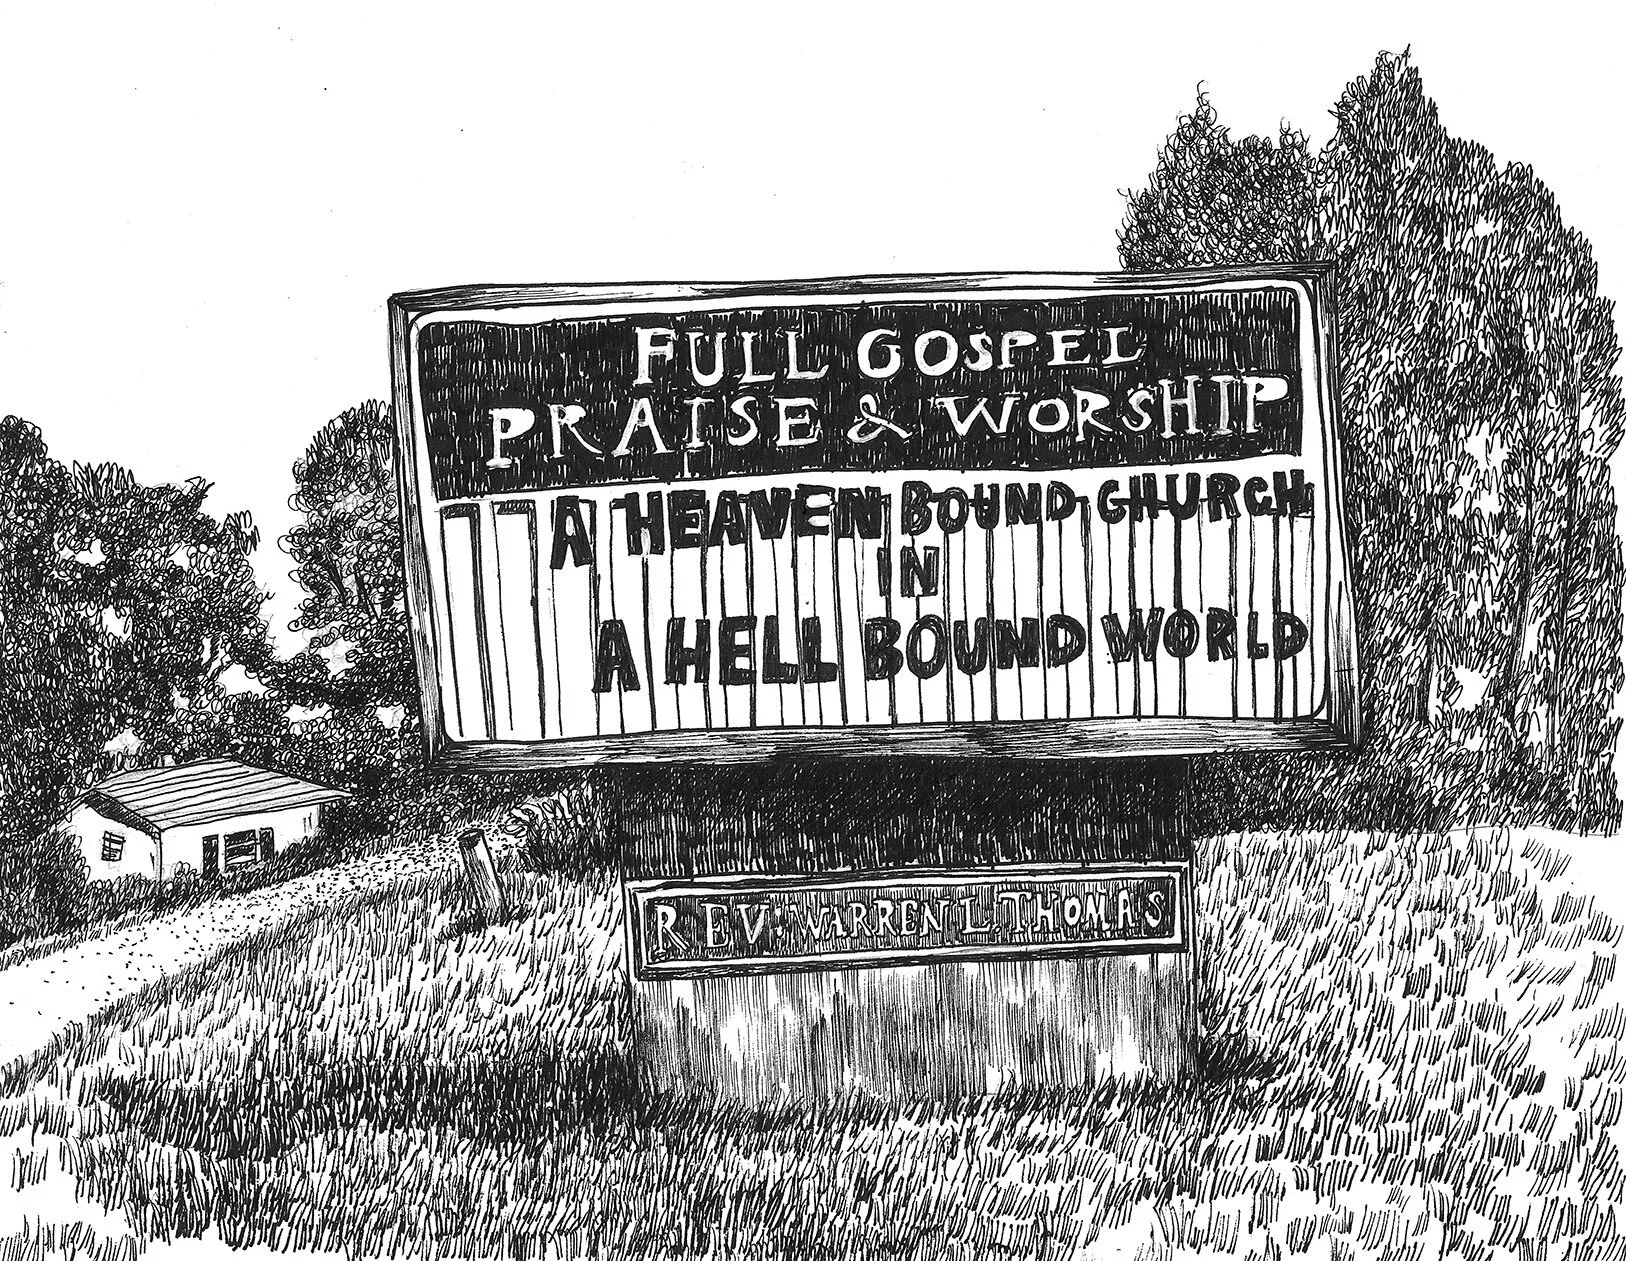 FULL GOSPEL
PRAISE & WORSHIP
A HEAVEN BOUND CHURCH
IN
A HELL BOUND WORLD
REV: WARREN L. THOMAS